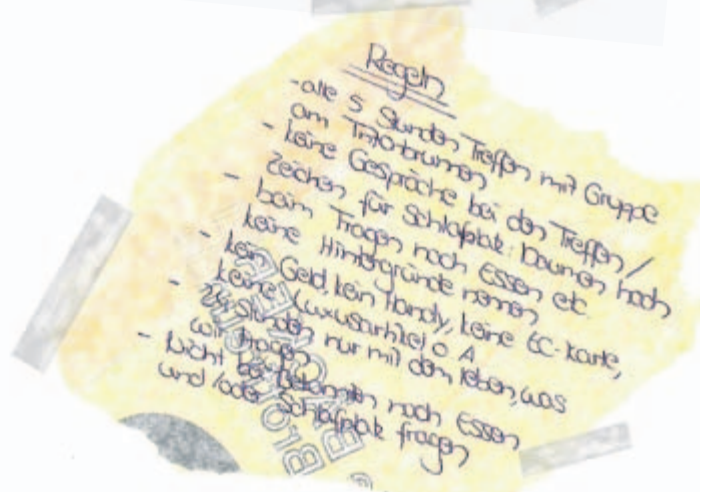 Regeln
- alle 5 Stunden Treffen mit Gruppe
am Tritonbrunnen
- keine Gespräche bei den Treffen /
Zeichen für Schlafplatz: Daumen hoch
- beim Fragen nach Essen etc.
keine Hintergründe nennen
- kein Geld, kein Handy, keine EC-Karte,
keine Luxusartikel o. Ä
- 24 Stunden nur mit dem leben, was
wir tragen
- Nicht bei Bekannten nach Essen
und/oder Schlafplatz fragen